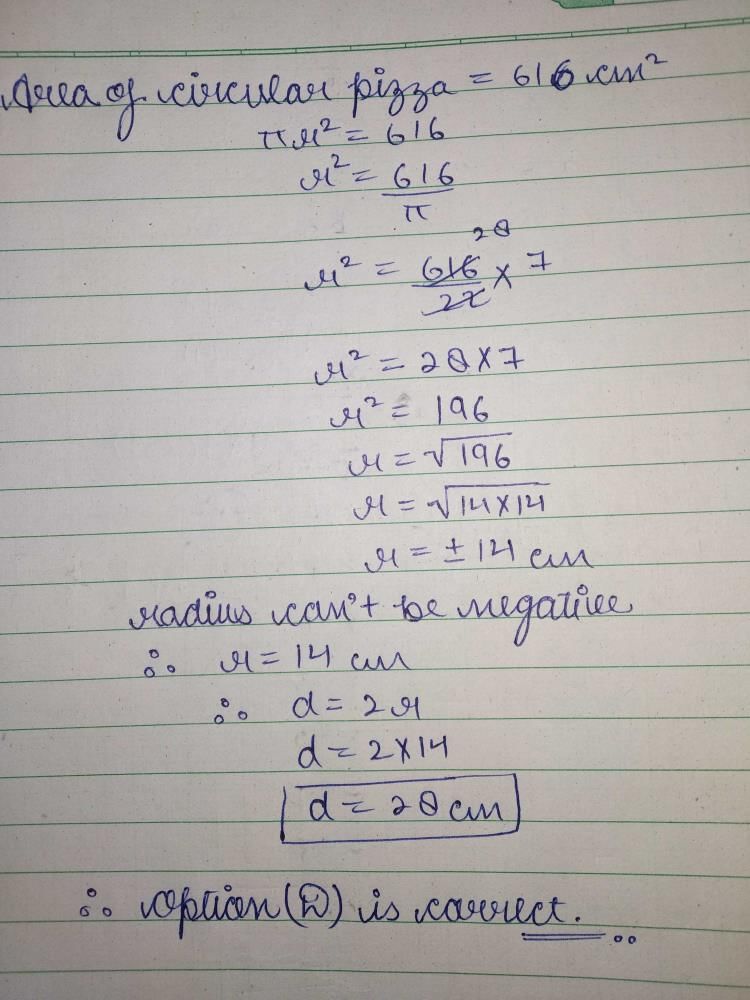 Area of circular pizza = 616 cm²
πr² = 616
r² = 616/π
r² = 616/22 × 7 28
r² = 28×7
r² = 196
r = √196
r = √14×14
r = ±14 cm
radius can't be negative
∴ r = 14 cm
∴ d = 2r
d = 2×14
d = 28 cm
∴ option (D) is correct.